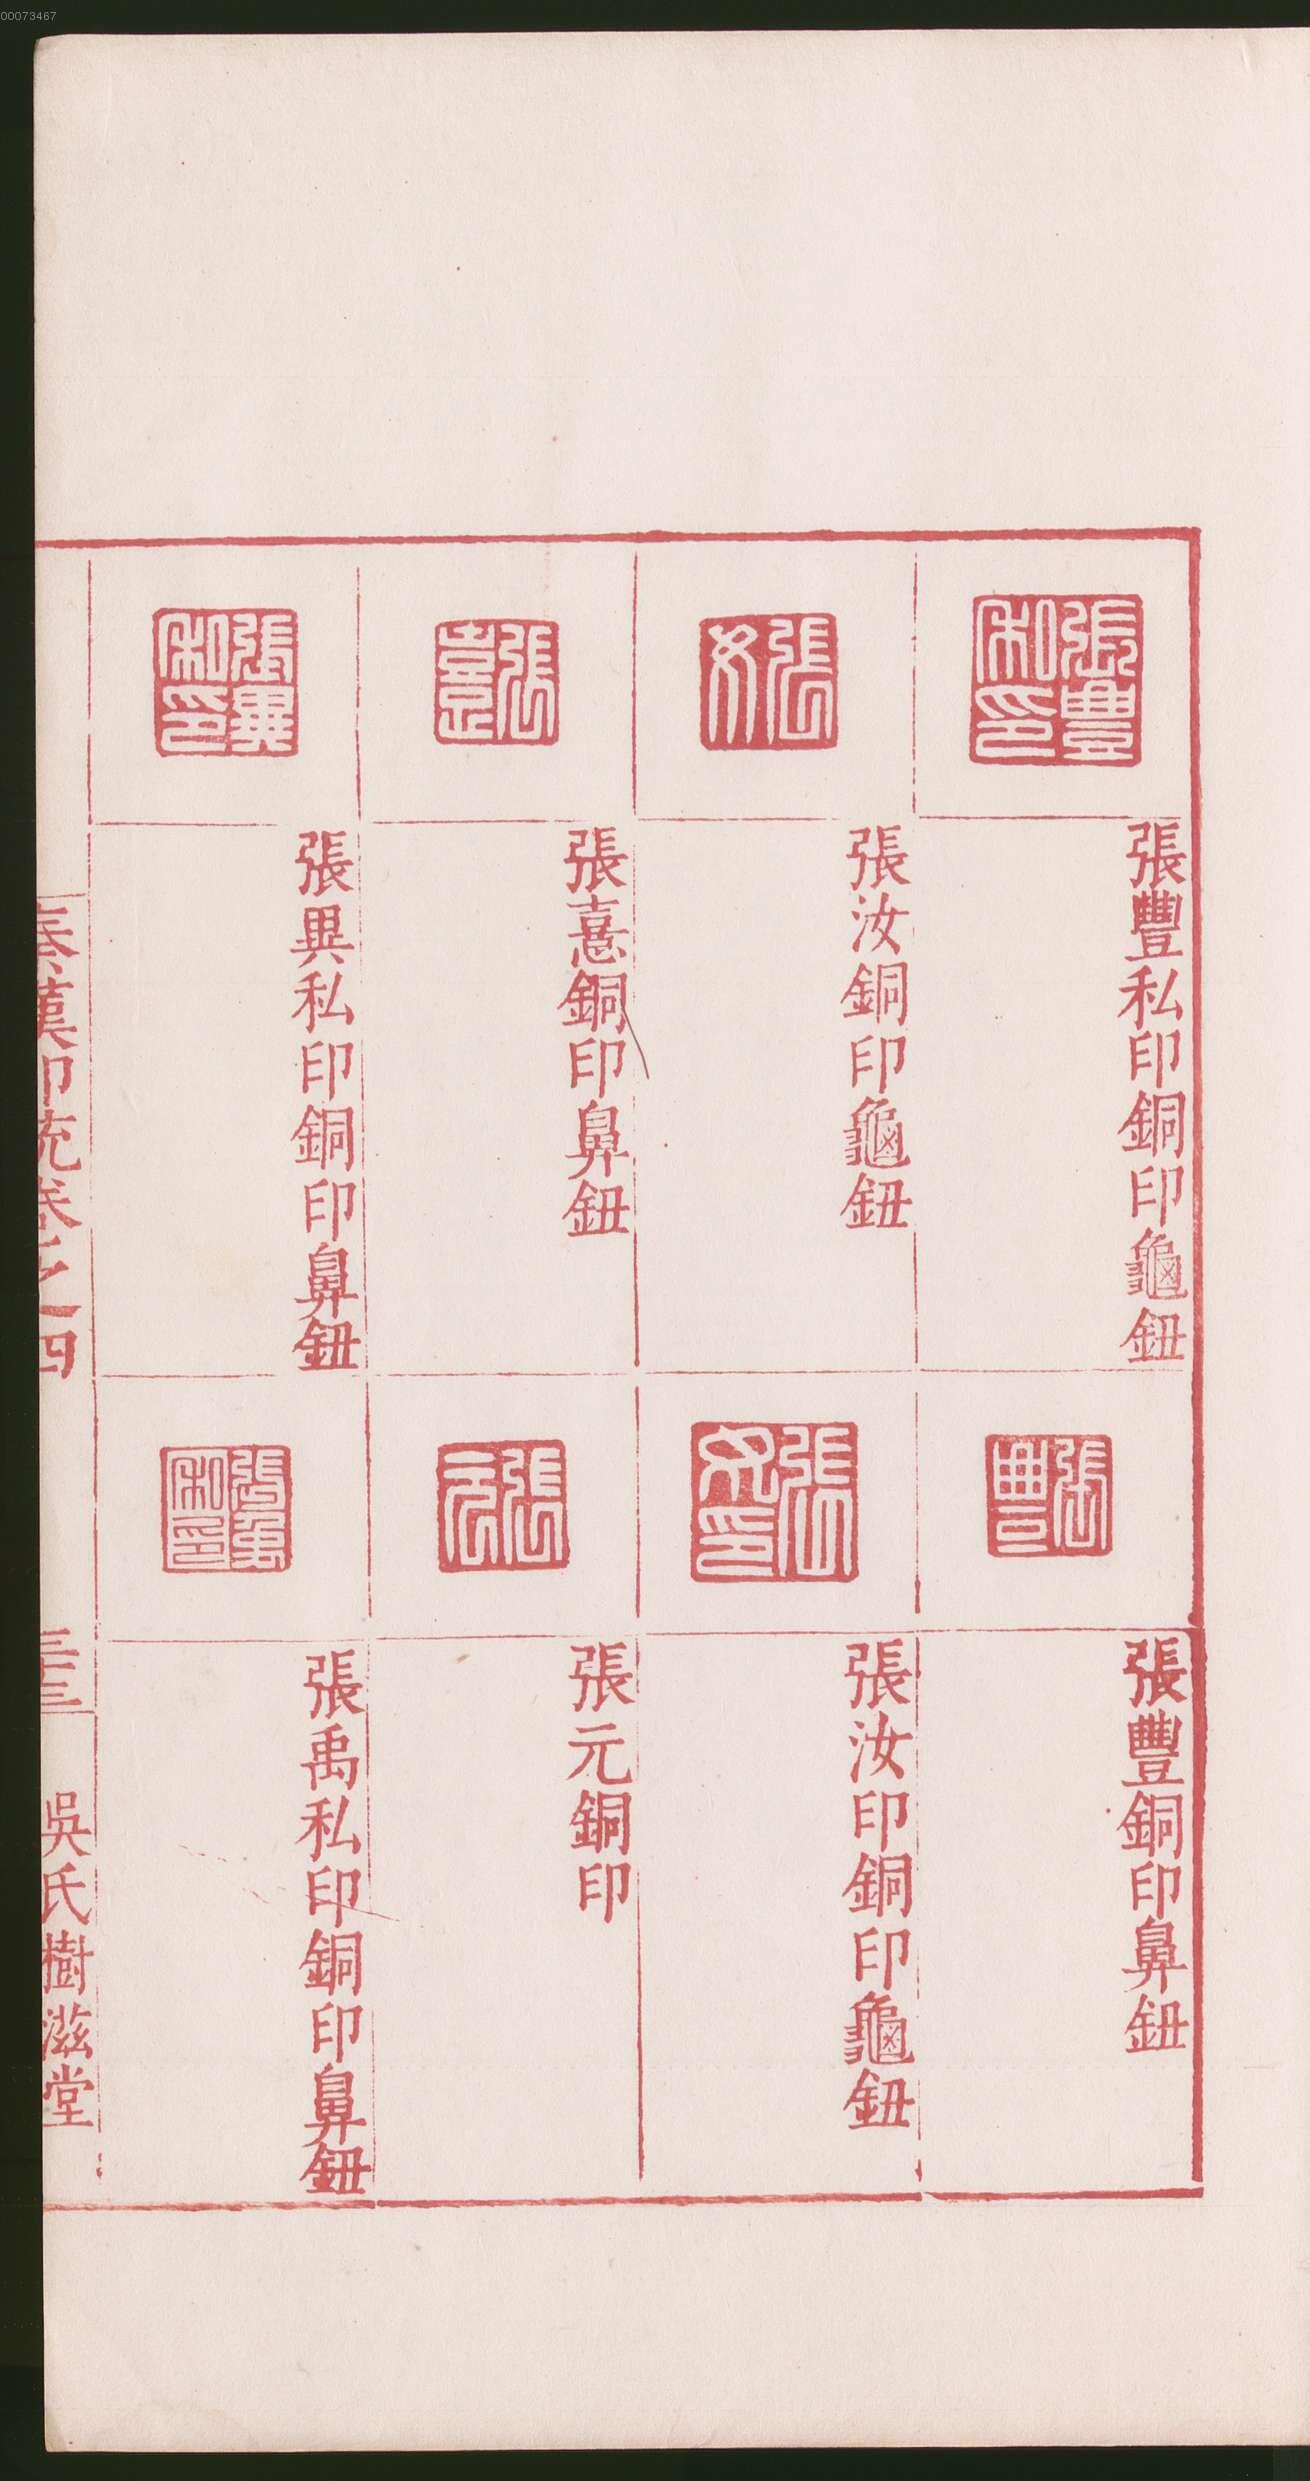 00073467
張豐私印
張豐私印銅印龜鈕
張汝
張汝銅印龜鈕
張憙
張憙銅印鼻鈕
張異私印
張異私印銅印鼻鈕
張豐
張豐銅印鼻鈕
張汝印
張汝印銅印龜鈕
張元
張元銅印
張禹私印
張禹私印銅印鼻鈕
秦漢印統卷之四
三十三
吳氏樹滋堂